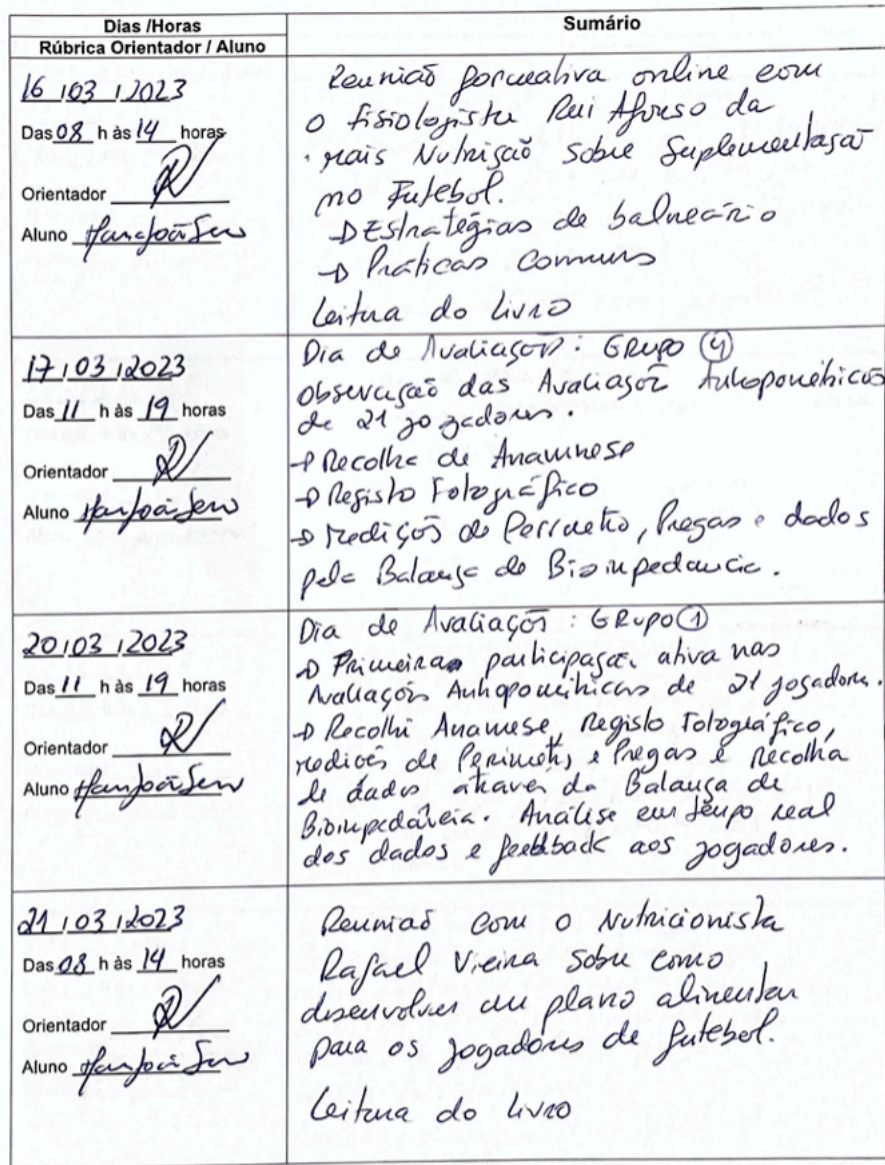 Dias /Horas
Rúbrica Orientador / Aluno
Sumário
16 / 03 / 2023
Das 08 h às 14 horas
Orientador
Aluno
Reunião formativa online com
o fisiologista Rui Afonso da
mais Nutrição sobre Suplementação
no Futebol.
→ Estratégias de balneário
→ Práticas comuns
Leitura do livro
17 / 03 / 2023
Das 11 h às 19 horas
Orientador
Aluno
Dia de Avaliação : GRUPO ④
Observação das Avaliações Antropométricas
de 21 jogadores.
→ Recolha de Anamnese
→ Registo Fotográfico
→ Medições de Perímetro, Pregas e dados
pela Balança de Bioimpedancia.
20 / 03 / 2023
Das 11 h às 19 horas
Orientador
Aluno
Dia de Avaliação : GRUPO ①
→ Primeira participação ativa nas
Avaliações Antropométricas de 21 jogadores.
→ Recolhi Anamnese, Registo Fotográfico,
medições de Perímetros e Pregas e recolha
de dados através da Balança de
Bioimpedância. Análise em tempo real
dos dados e feedback aos jogadores.
21 / 03 / 2023
Das 08 h às 14 horas
Orientador
Aluno
Reunião com o Nutricionista
Rafael Vieira sobre como
desenvolver um plano alimentar
para os jogadores de futebol.
Leitura do livro